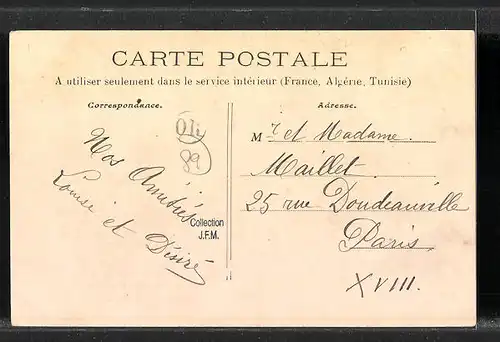 CARTE POSTALE
A utiliser seulement dans le service intérieur (France, Algérie, Tunisie)
Correspondance.
Adresse.
Nos Amitiés
Louise et Désiré
89
Collection
J.F.M.
Mr et Madame
Maillet
25 rue Doudeauville
Paris
XVIII.